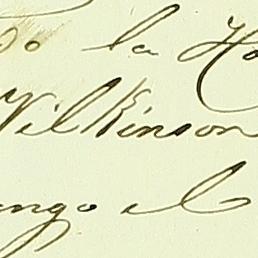 do la Ho
Wilkinson
ngo el